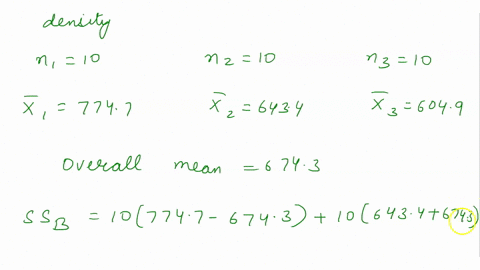 density
n₁ = 10 n₂ = 10 n₃ = 10
X̄₁ = 774.7 X̄₂ = 643.4 X̄₃ = 604.9
Overall mean = 674.3
SSB = 10(774.7 - 674.3) + 10(643.4 + 6743